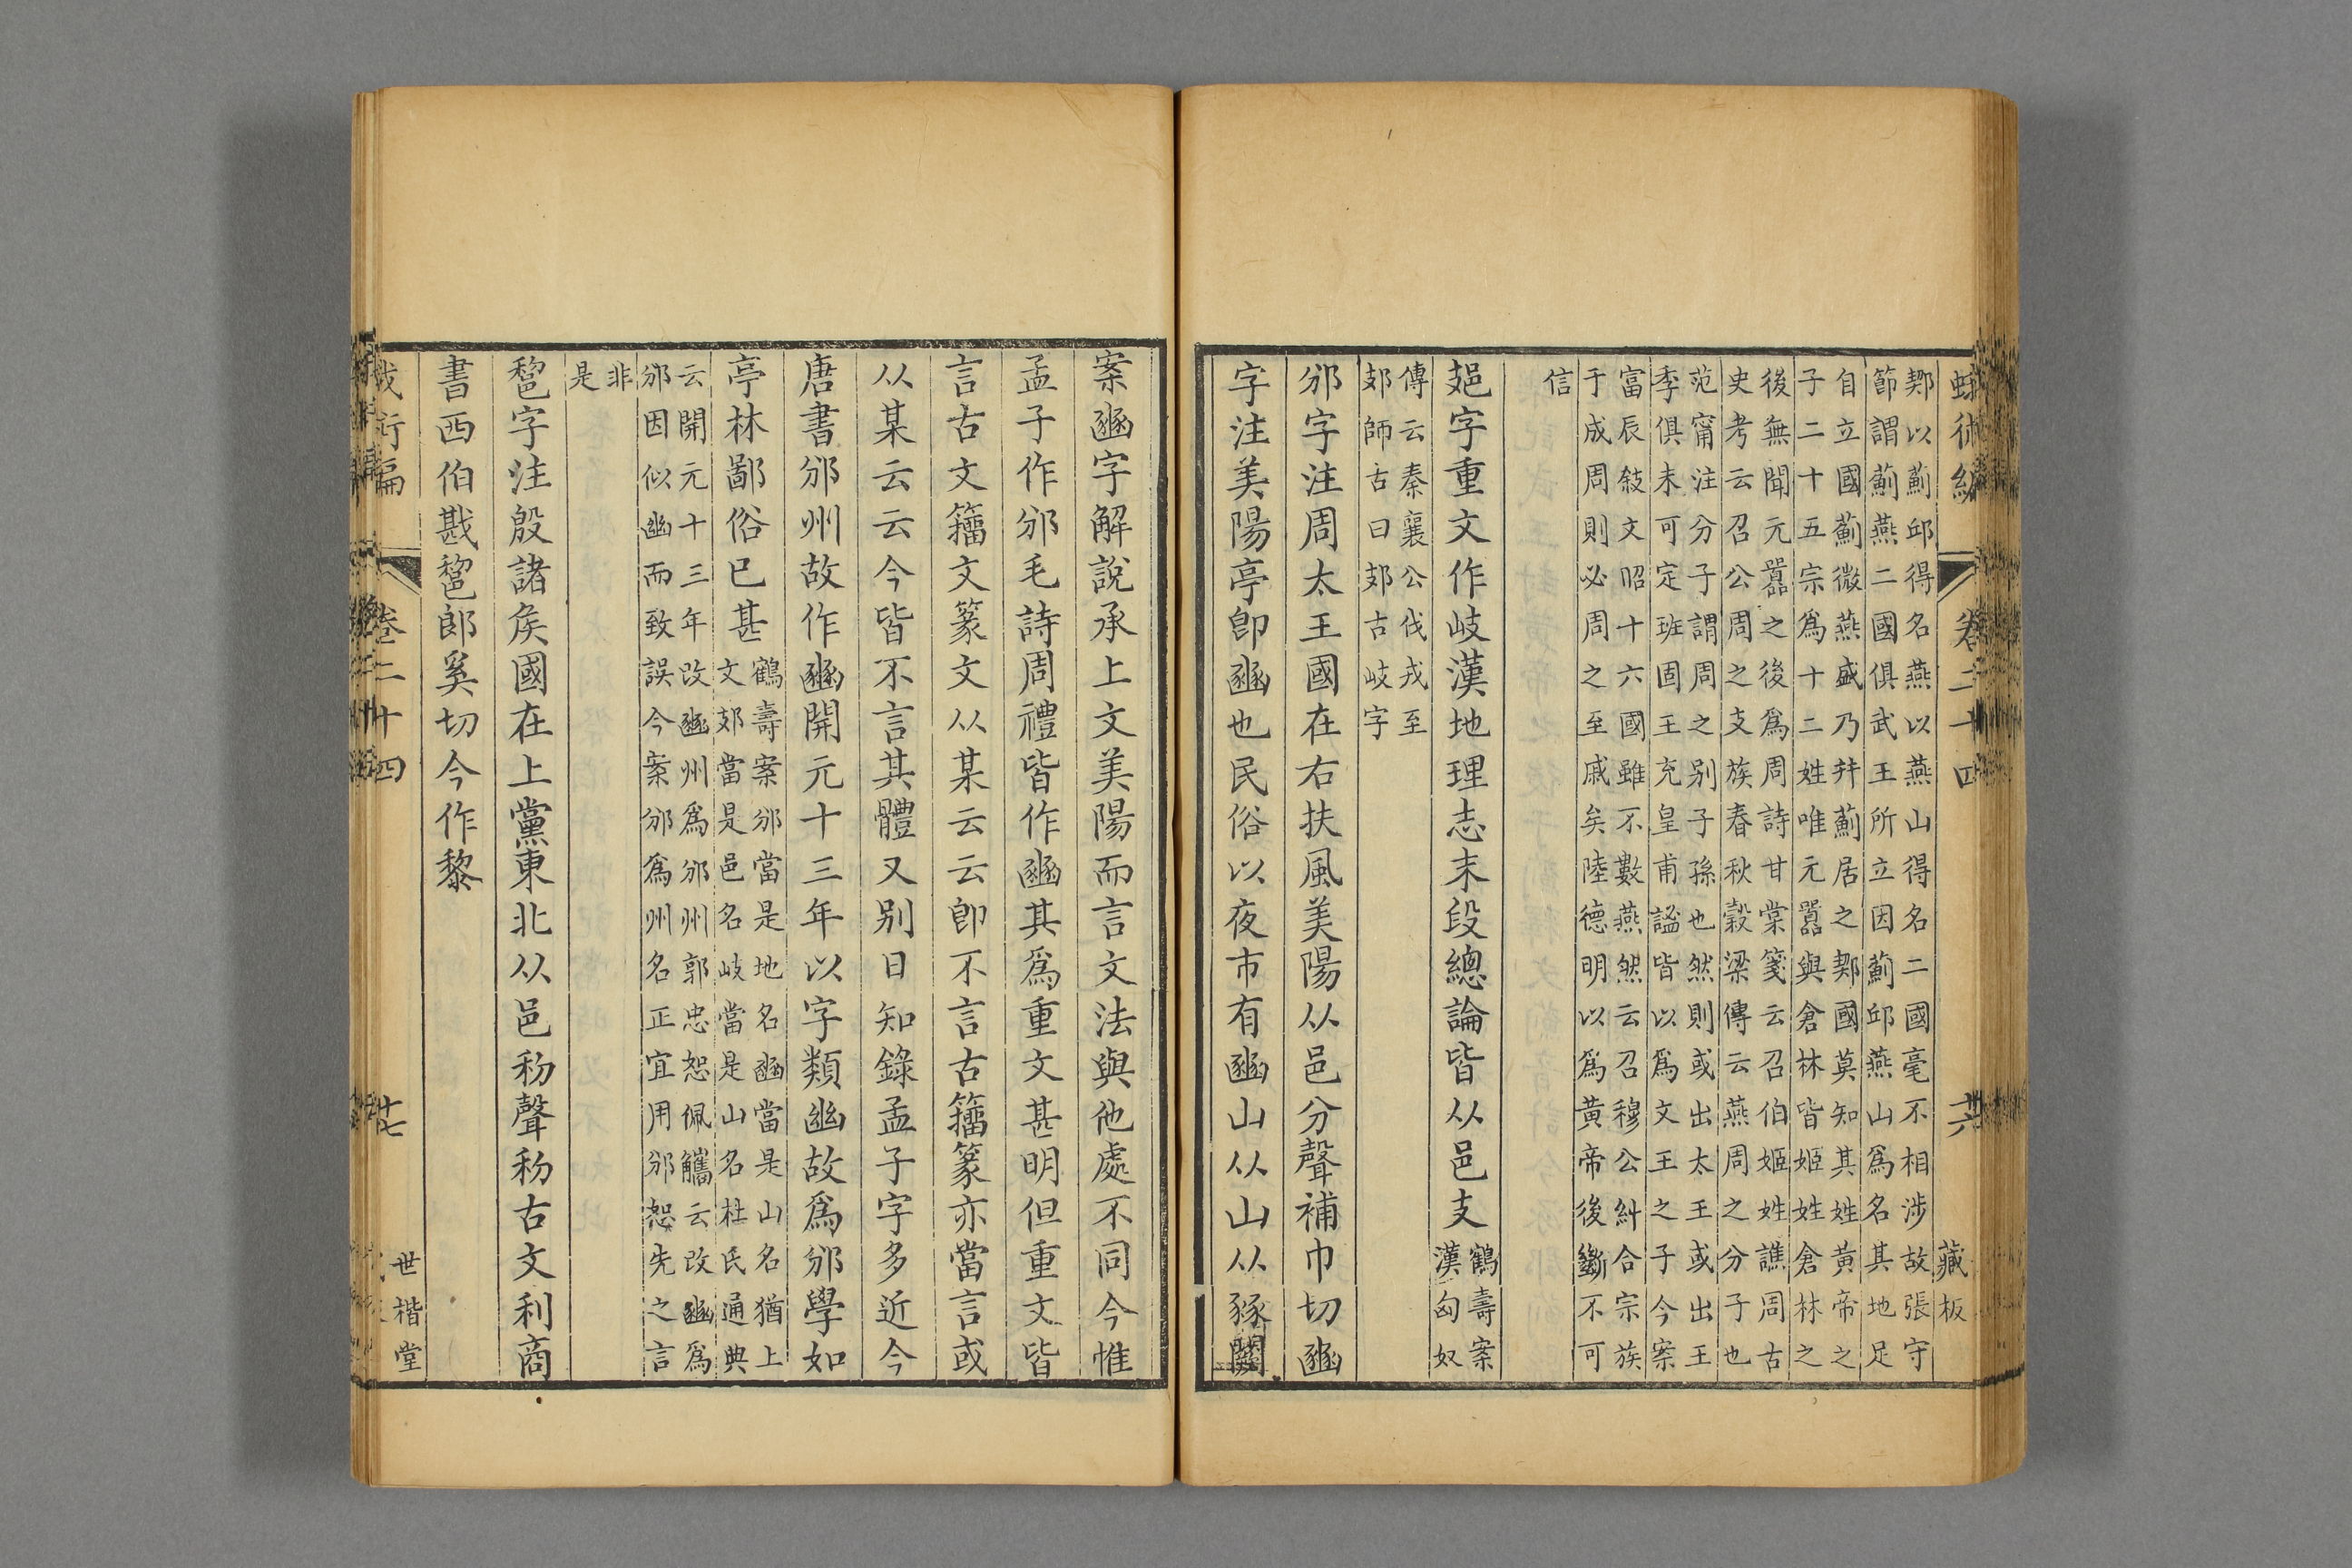 蛾術編 卷二十四 十六 藏板
鄚以薊邱得名燕以燕山得名二國毫不相涉故張守
節謂薊燕二國俱武王所立因薊邱燕山爲名其地足
自立國薊微燕盛乃幷薊居之鄚國莫知其姓黃帝之
子二十五宗爲十二姓唯元囂與倉林皆姬姓倉林之
後無聞元囂之後爲周詩甘棠箋云召伯姬姓譙周古
史考云召公周之支族春秋穀梁傳云燕周之分子也
范甯注分子謂周之别子孫也然則或出太王或出王
季俱未可定班固王充皇甫謐皆以爲文王之子今案
富辰敍文昭十六國雖不數燕然云召穆公糾合宗族
于成周則必周之至戚矣陸德明以爲黃帝後斷不可
信
𨙸字重文作岐漢地理志末段總論皆从邑支
鶴壽案
漢匈奴
傳云秦襄公伐戎至
郊師古曰郊古岐字
邠字注周太王國在右扶風美陽从邑分聲補巾切豳
字注美陽亭卽豳也民俗以夜市有豳山从山从豩闕
案豳字解說承上文美陽而言文法與他處不同今惟
孟子作邠毛詩周禮皆作豳其爲重文甚明但重文皆
言古文籀文篆文从某云云卽不言古籀篆亦當言或
从某云云今皆不言其體又别日知錄孟子字多近今
唐書邠州故作豳開元十三年以字類幽故爲邠學如
亭林鄙俗已甚
鶴壽案邠當是地名豳當是山名猶上
文郊當是邑名岐當是山名杜氏通典
云開元十三年改豳州爲邠州郭忠恕佩觿云改豳爲
邠因似幽而致誤今案邠爲州名正宜用邠恕先之言
非
是
𨛫字注殷諸矦國在上黨東北从邑𥝢聲𥝢古文利商
書西伯戡𨛫郎奚切今作黎
蛾術編 卷二十四 十七 世楷堂